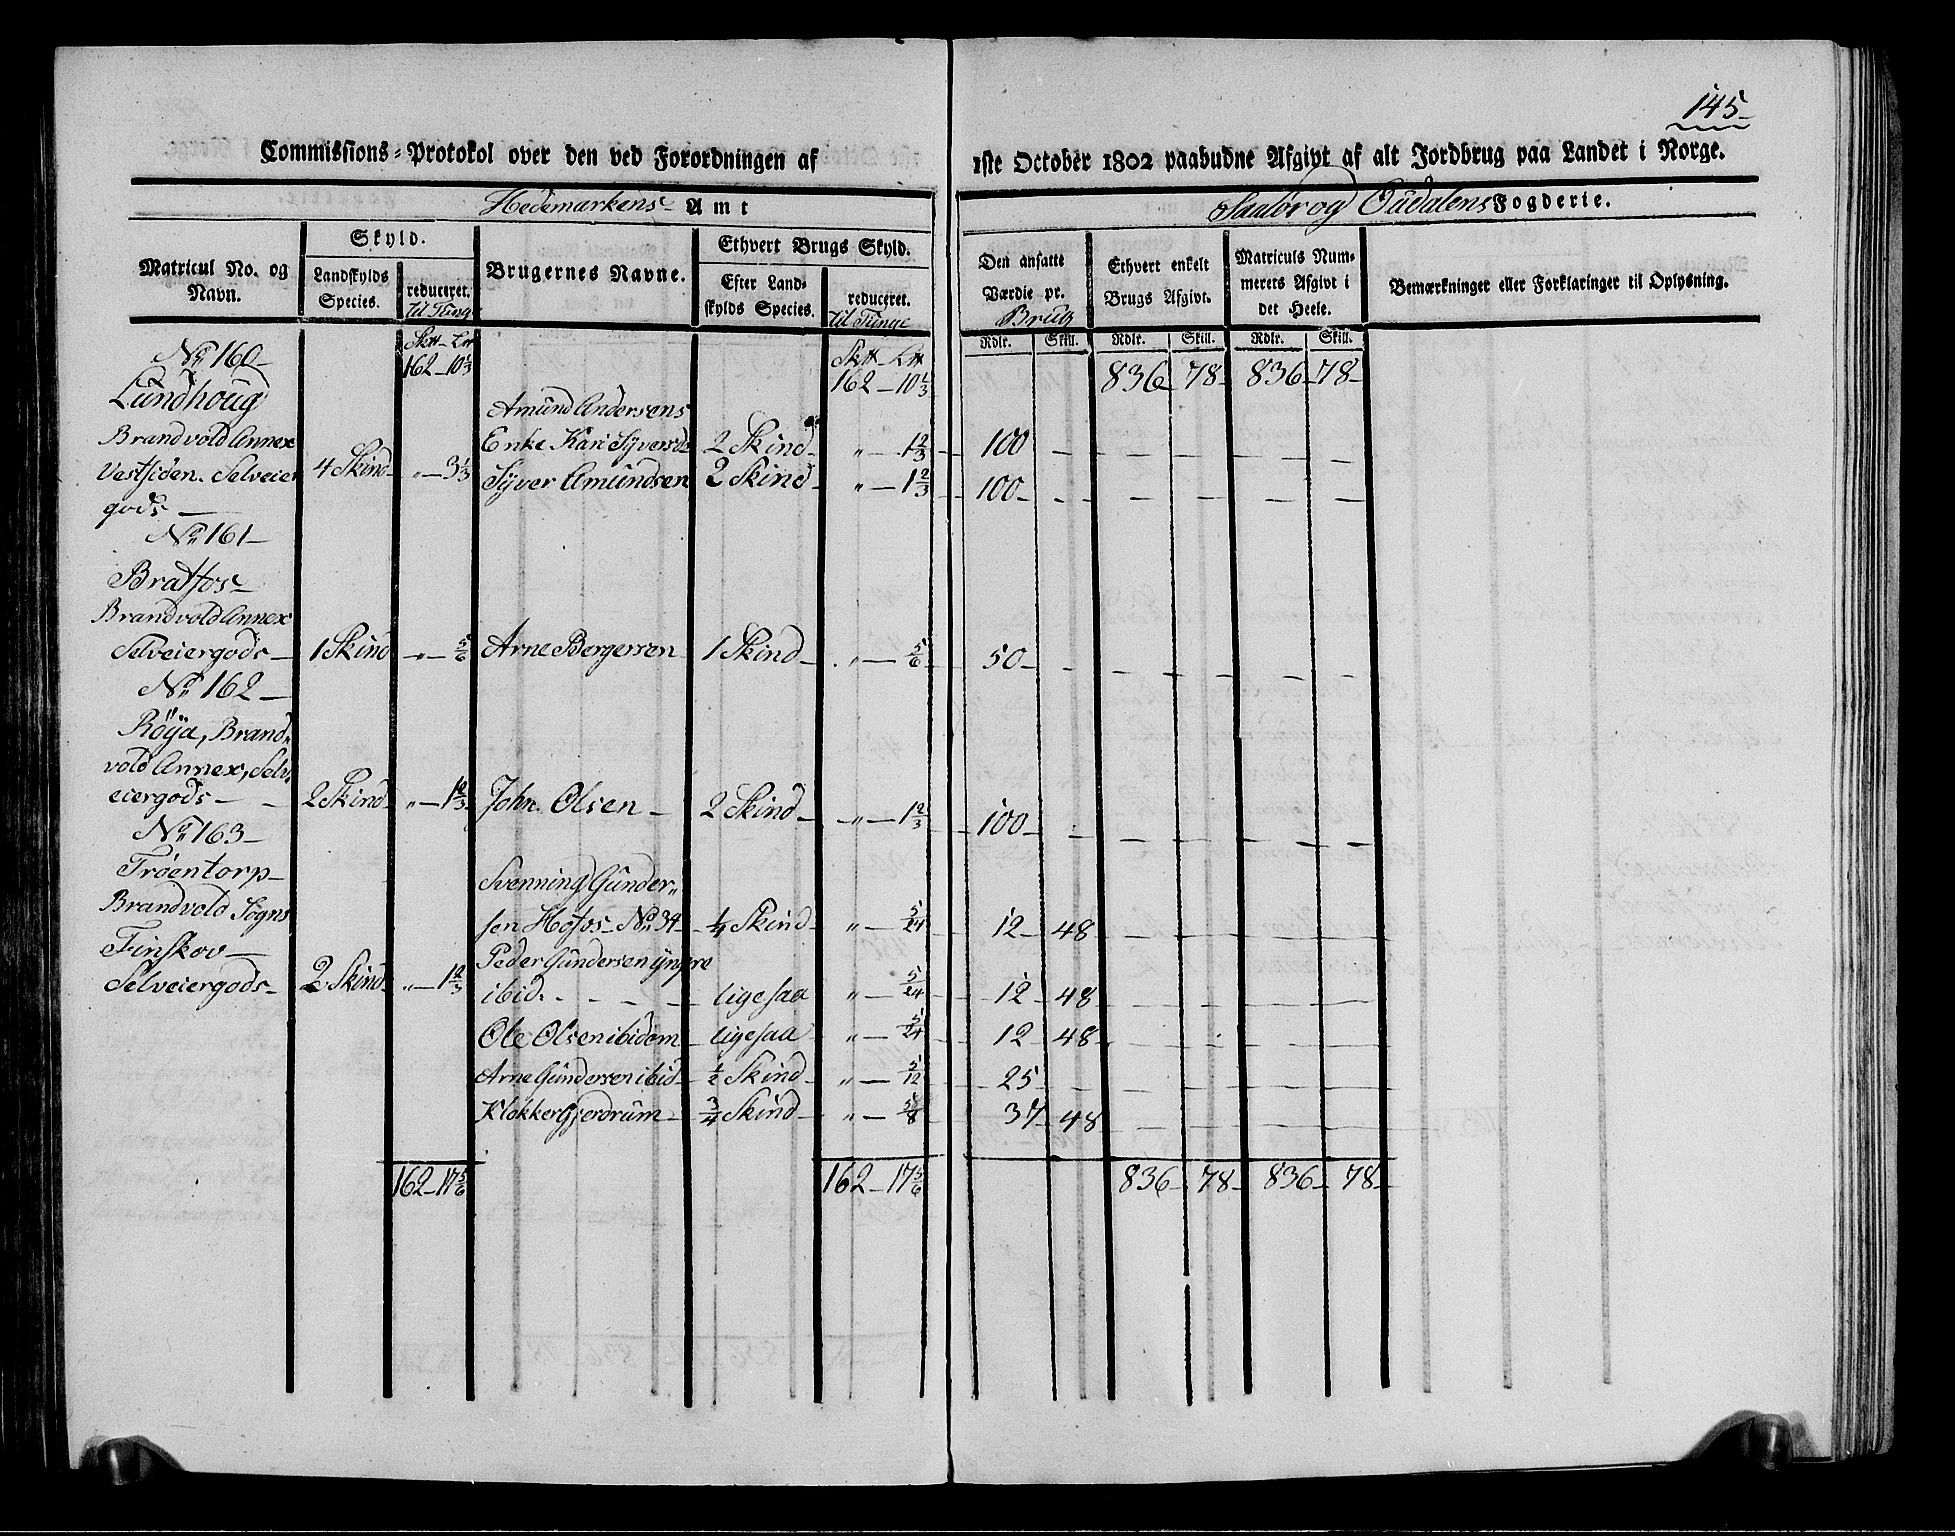 145
Commissions-Protokol over den ved Forordningen af 1ste October 1802 paabudne Afgivt af alt Jordbrug paa Landet i Norge.
Hedemarkens Amt
Soelør og Oudalens Fogderie.
Matricul No. og Navn.
Skyld.
Landskylds Species.
reduceret.
til Tunge
Brugernes Navne.
Ethvert Brugs Skyld.
Efter Landskylds Species.
reduceret.
til Tunge
Den ansatte Værdie pr. Brug
Ethvert enkelt Brugs Afgivt.
Matriculs Nummerets Afgivt i det Heele.
Bemærkninger eller Forklaringer til Oplysning.
Rdlr. Skill. Rdlr. Skill. Rdlr. Skill.
162 - 10 1/3 162 - 10 1/3 836 - 78 - 836 - 78 -
No 160 -
Lundhoug
Brandvold Annex
Vestsiden. Selveier
gods -
4 Skind - " - 3 1/3
Amund Andersens
Enke Kari Syversd. 2 Skind - " - 1 2/3 - 100 - - - - -
Syver Amundsen 2 Skind - " - 1 2/3 - 100 - - - - -
No 161 -
Bratfos -
Brandvold Annex
Selveiergods - 1 Skind - " - 5/6 Arne Bergersen 1 Skind - " - 5/6 50 - - - - - -
No 162 -
Røya, Brand„
vold Annex, Selv„
eiergods - - 2 Skind - " - 1 2/3 John Olsen - 2 Skind - " - 1 2/3 - 100 - - - - - -
No 163 -
Trøentorp -
Brandvold Sogns
Finskov -
Selveiergods - 2 Skind - " - 1 2/3
Svenning Gunder„
sen Hofos - No 34 - 1/4 Skind - " - 5/24 12 - 48 - - - -
Peder Gundersen yngre
ibid. - - - - ligesaa " - 5/24 12 - 48 - - - -
Ole Olsen ibidem - ligesaa " - 5/24 12 - 48 - - - -
Arne Gundersen ibid - 1/2 Skind - " - 5/12 25 - - - - -
Klokker Gjerdrum - 3/4 Skind - " - 5/8 37 - 48 - - - -
162 - 17 5/6 162 - 17 5/6 836 - 78 - 836 - 78 -